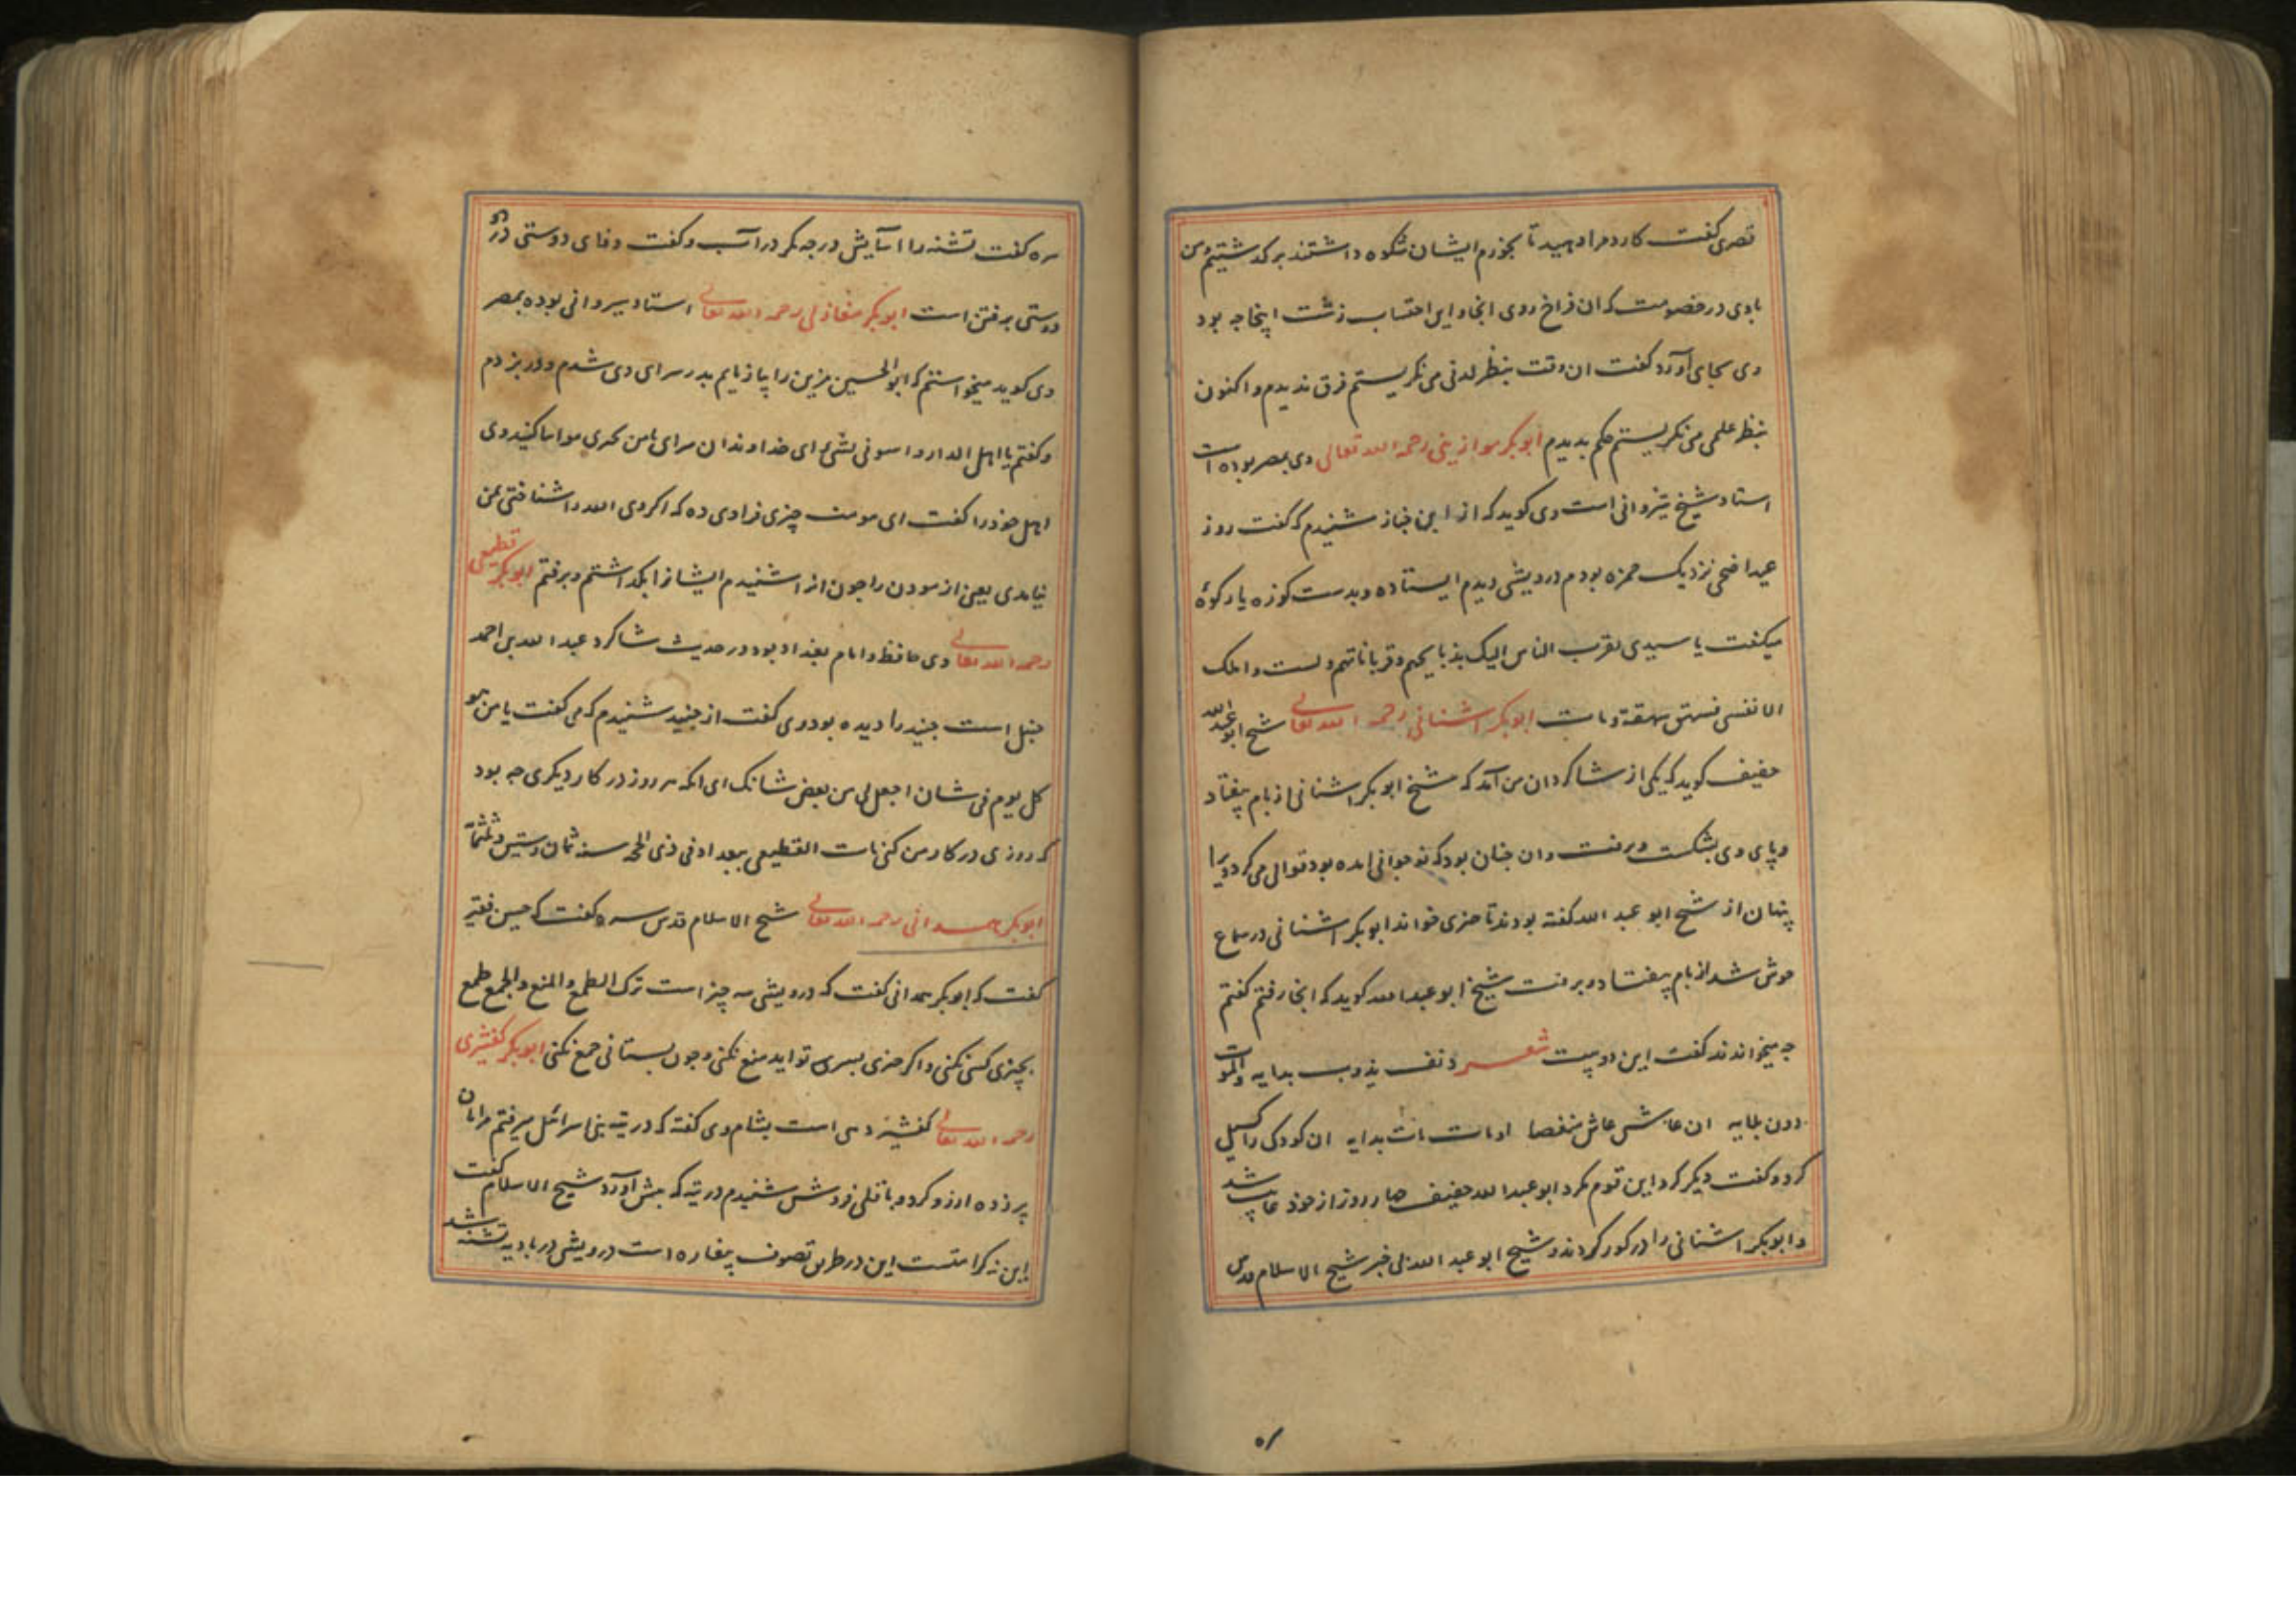 قصری گفت کارد مرا دهید تا بخورم ایشان شکوه داشتند برگذشتیم و من
بادی در خصومت که ان فراخ روی انجا و این احتساب زشت اینجا چه بود
وی بجای آورد گفت ان وقت بنظر لدنی می نگریستم فرق ندیدم و اکنون
بنظر علمی می نگریستم حکم بدیدم ابوبکر موازینی رحمه الله تعالی وی بمصر بوده است
استاد شیخ شیروانی است وی گوید که از ابن خباز شنیدم که گفت روز
عید اضحی نزدیک حمزه بودم درویشی دیدم ایستاده و بدست کوزه یا رکوهٔ
میگفت یا سیدی تقرب الناس الیک بذبایحهم و قرباناتهم و لست املک
الا نفسی فشهق شهقة و مات ابوبکر اشنانی رحمه الله تعالی شیخ ابو عبد الله
خفیف گوید که یکی از شاگردان من آمد که شیخ ابوبکر اشنانی از بام بیفتاد
و پای وی بشکست و برفت و ان چنان بود که نوجوانی امده بود قوالی می کرد ویرا
پنهان از شیخ ابو عبد الله گفته بودند تا چیزی خواند ابوبکر اشنانی در سماع
خوش شد از بام بیفتاد و برفت شیخ ابو عبد الله گوید که انجا رفتم گفتم
چه میخواندند گفت این دو بیت شعر دنف یذوب بدایه و الموت
دون بلایه ان عاش عاش منغصا او مات مات بدایه ان کودک را گسیل
کرد و گفت دیگر گرد این قوم مگرد ابو عبد الله خفیف چهار روز از خود غایب شد
و ابوبکر اشنانی را در گور کردند و شیخ ابو عبد الله بی خبر شیخ الاسلام قدس
سره گفت تشنه را اسایش در چه مگر در آب و گفت وفای دوستی در
دوستی برفتن است ابوبکر مغازلی رحمه الله تعالی استاد سیروانی بوده بمصر
وی گوید میخواستم که ابو الحسین مزین را بیازمایم بدر سرای وی شدم و در بزدم
و گفتم یا اهل الدار واسونی بشیء ای خداوندان سرای با من بچیزی مواسا کنید وی
اهل خود را گفت ای مومنه چیزی فرا وی ده که اگر وی الله را شناختی بمن
نیامدی یعنی ازمودن را چون انرا شنیدم ایشانرا بگذاشتم و برفتم ابوبکر قطیعی
رحمه الله تعالی وی حافظ و امام بغداد بود در حدیث شاگرد عبد الله بن احمد
حنبل است جنید را دیده بود وی گفت از جنید شنیدم که می گفت یا من هو
کل یوم فی شان اجعل لی من بعض شانک ای انکه هر روز در کار دیگری چه بود
که روزی در کار من کنی مات القطیعی ببغداد فی ذی الحجه سنه ثمان و ستین و ثلثمائة
ابوبکر همدانی رحمه الله تعالی شیخ الاسلام قدس سره گفت که حسین فقیر
گفت که ابوبکر همدانی گفت که درویشی سه چیز است ترک الطمع و المنع و الجمع طمع
بچیزی کسی نکنی و اگر چیزی بسر تو اید منع نکنی و چون بستانی جمع نکنی ابوبکر کفشیری
رحمه الله تعالی کفشیر دهی است بشام وی گفته که در تیه بنی اسرائیل میرفتم مرا نان
پرزده ارزو کرد و باقلی فروش شنیدم در تیه که پیش آورد شیخ الاسلام گفت
این نه کرامتست این در طریق تصوف بیغاره است درویشی در بادیه تشنه شد